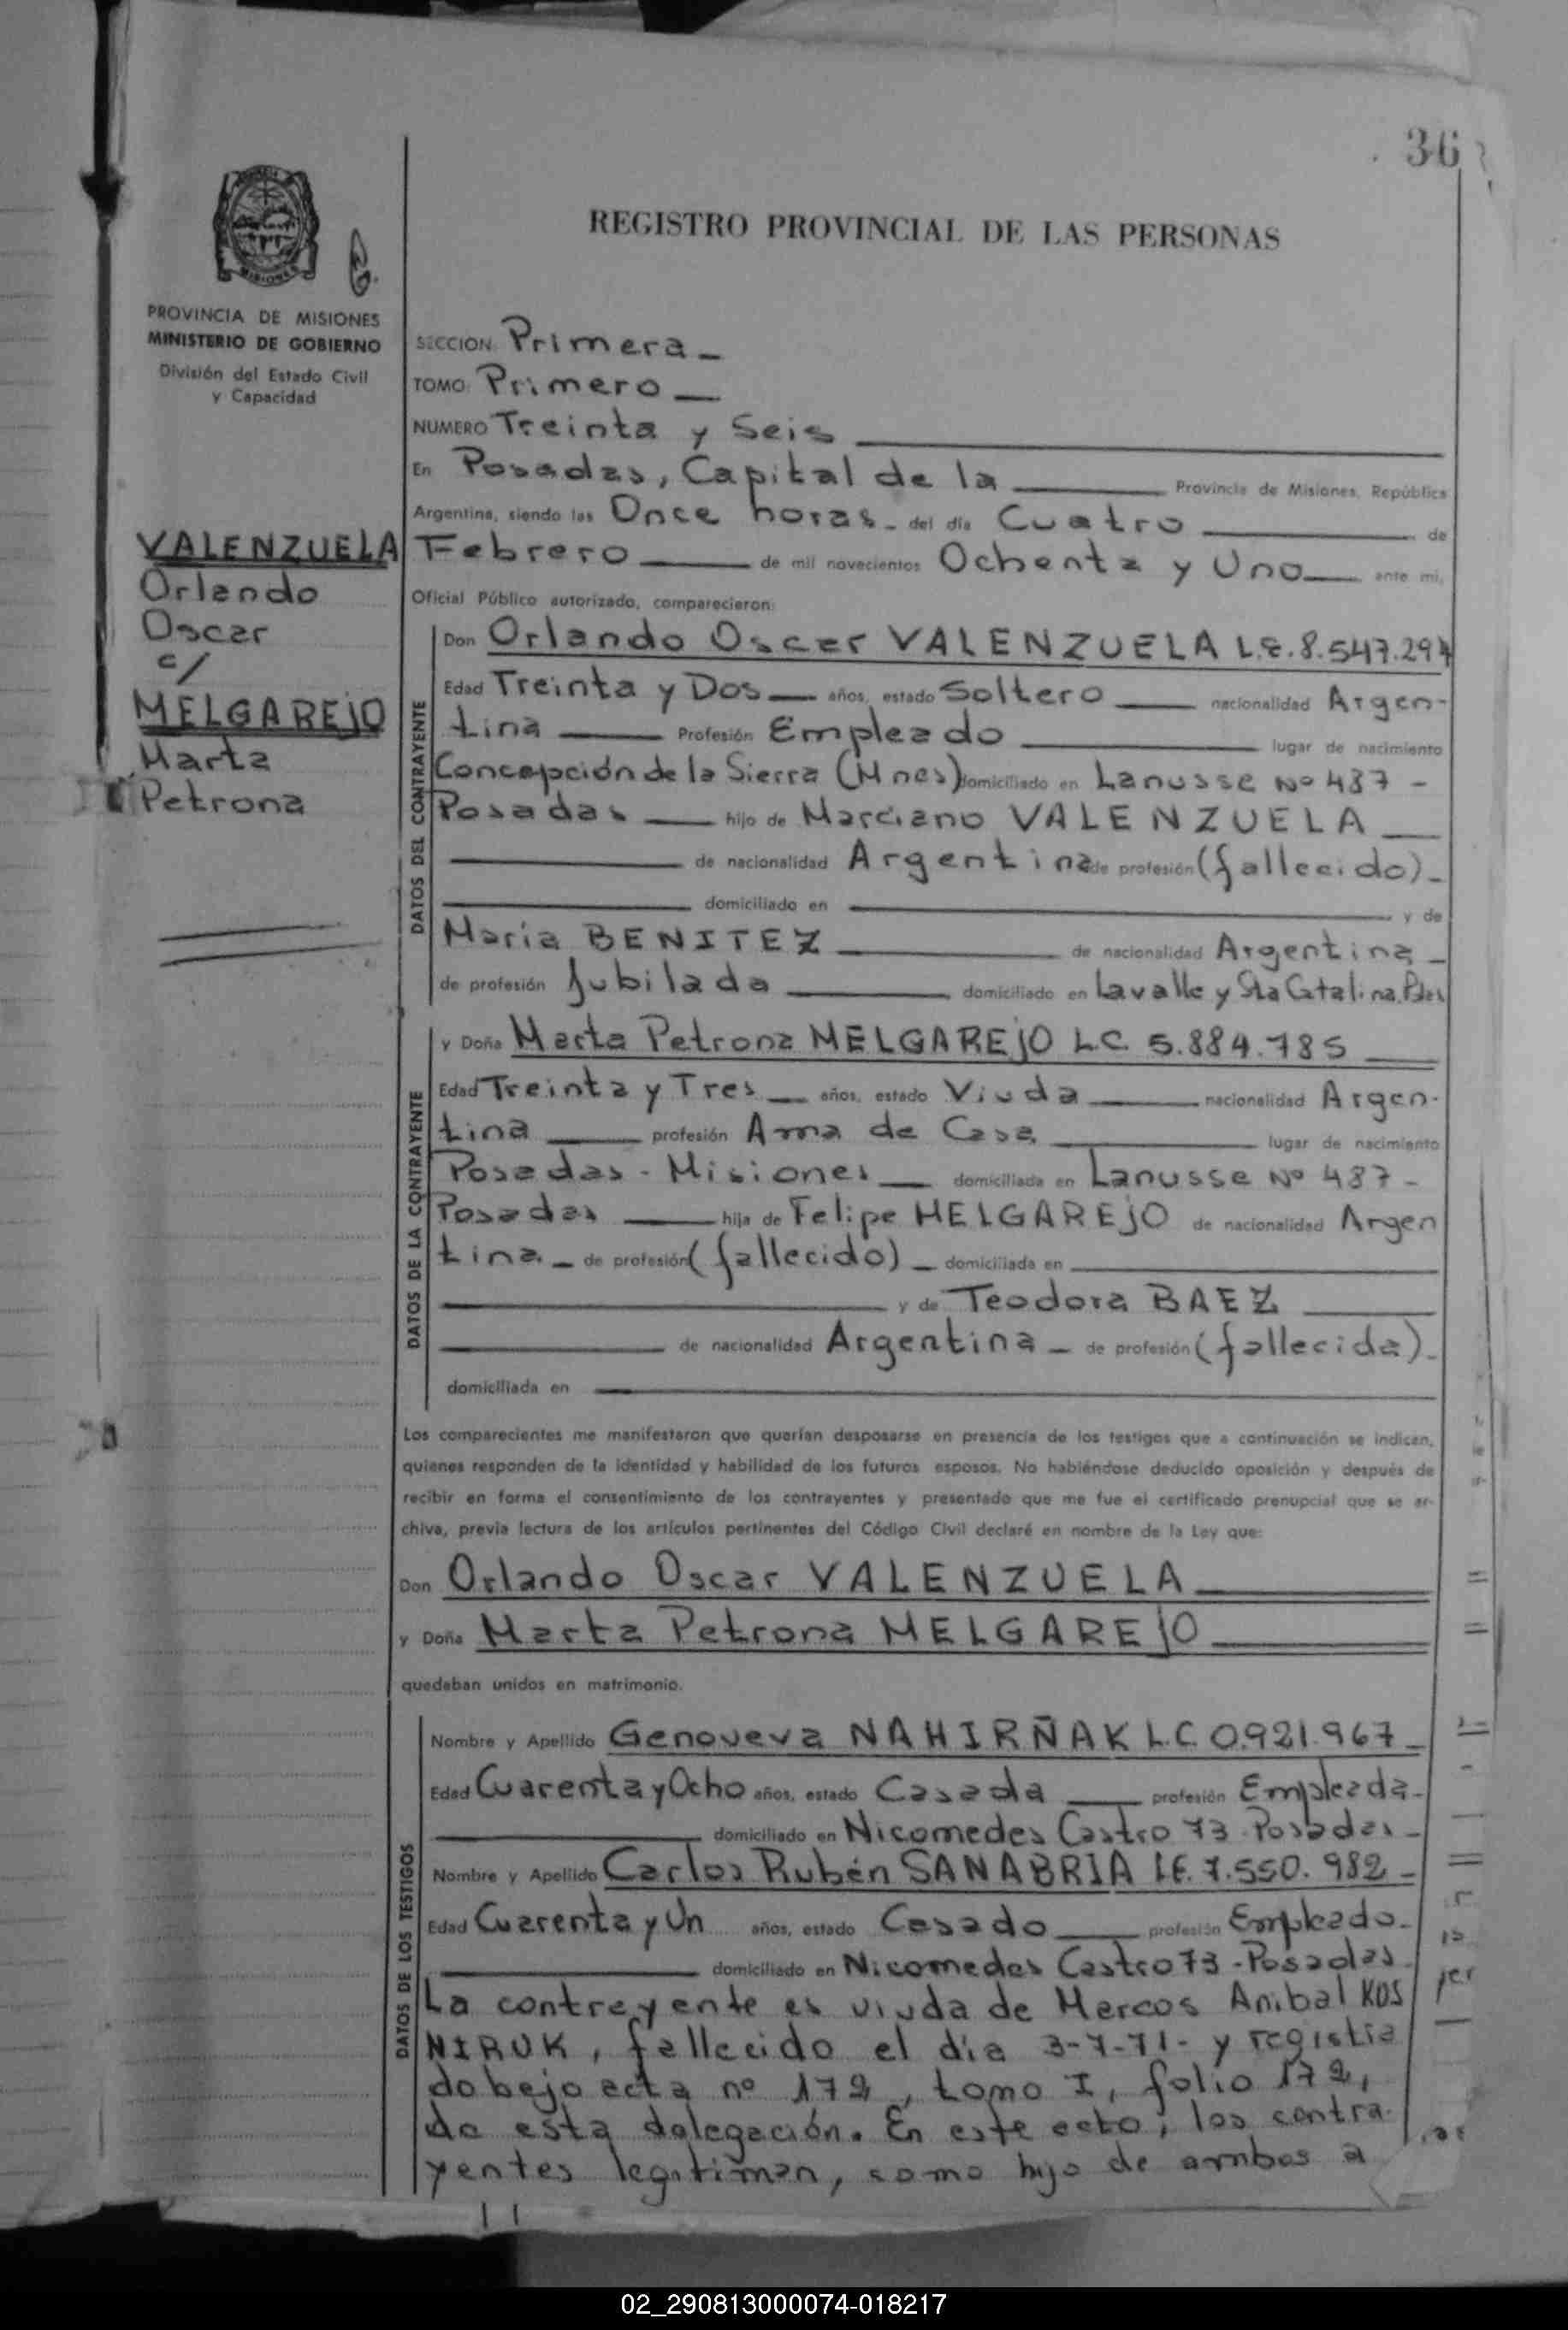 36
REGISTRO PROVINCIAL DE LAS PERSONAS
MISIONES
PROVINCIA DE MISIONES
MINISTERIO DE GOBIERNO
División del Estado Civil
y Capacidad
VALENZUELA
Orlando
Oscar
c/
MELGAREJO
Marta
Petrona
SECCION Primera
TOMO Primero
NUMERO Treinta y Seis
En Posadas, Capital de la Provincia de Misiones, República
Argentina, siendo las Once horas del día Cuatro de
Febrero de mil novecientos Ochenta y Uno ante mi,
Oficial Público autorizado, comparecieron:
DATOS DEL CONTRAYENTE
Don Orlando Oscar VALENZUELA L.E. 8.547.294
Edad Treinta y Dos años, estado Soltero nacionalidad Argen-
tina Profesión Empleado lugar de nacimiento
Concepción de la Sierra (Mnes) domiciliado en Lanusse Nº 487 -
Posadas hijo de Marciano VALENZUELA
de nacionalidad Argentina de profesión (fallecido)
domiciliado en y de
María BENITEZ de nacionalidad Argentina
de profesión Jubilada domiciliado en Lavalle y Sta Catalina. Pdas
DATOS DE LA CONTRAYENTE
y Doña Marta Petrona MELGAREJO L.C. 5.884.785
Edad Treinta y Tres años, estado Viuda nacionalidad Argen-
tina profesión Ama de Casa lugar de nacimiento
Posadas - Misiones domiciliada en Lanusse Nº 487 -
Posadas hija de Felipe MELGAREJO de nacionalidad Argen
tina de profesión (fallecido) domiciliada en
y de Teodora BAEZ
de nacionalidad Argentina de profesión (fallecida)
domiciliada en
Los comparecientes me manifestaron que querían desposarse en presencia de los testigos que a continuación se indican,
quienes responden de la identidad y habilidad de los futuros esposos. No habiéndose deducido oposición y después de
recibir en forma el consentimiento de los contrayentes y presentado que me fue el certificado prenupcial que se ar-
chiva, previa lectura de los artículos pertinentes del Código Civil declaré en nombre de la Ley que:
Don Orlando Oscar VALENZUELA
y Doña Marta Petrona MELGAREJO
quedaban unidos en matrimonio.
DATOS DE LOS TESTIGOS
Nombre y Apellido Genoveva NAHIRÑAK L.C 0.921.967
Edad Cuarenta y Ocho años, estado Casada profesión Empleada
domiciliado en Nicomedes Castro 73 Posadas
Nombre y Apellido Carlos Rubén SANABRIA L.E. 7.550.982
Edad Cuarenta y Un años, estado Casado profesión Empleado
domiciliado en Nicomedes Castro 73 - Posadas
La contrayente es viuda de Marcos Anibal KOS
NIRUK, fallecido el día 3-7-71- y registra
do bajo acta nº 172, tomo I, folio 172,
de esta delegación. En este acto, los contra-
yentes legitiman, como hijo de ambos a
02_290813000074-018217